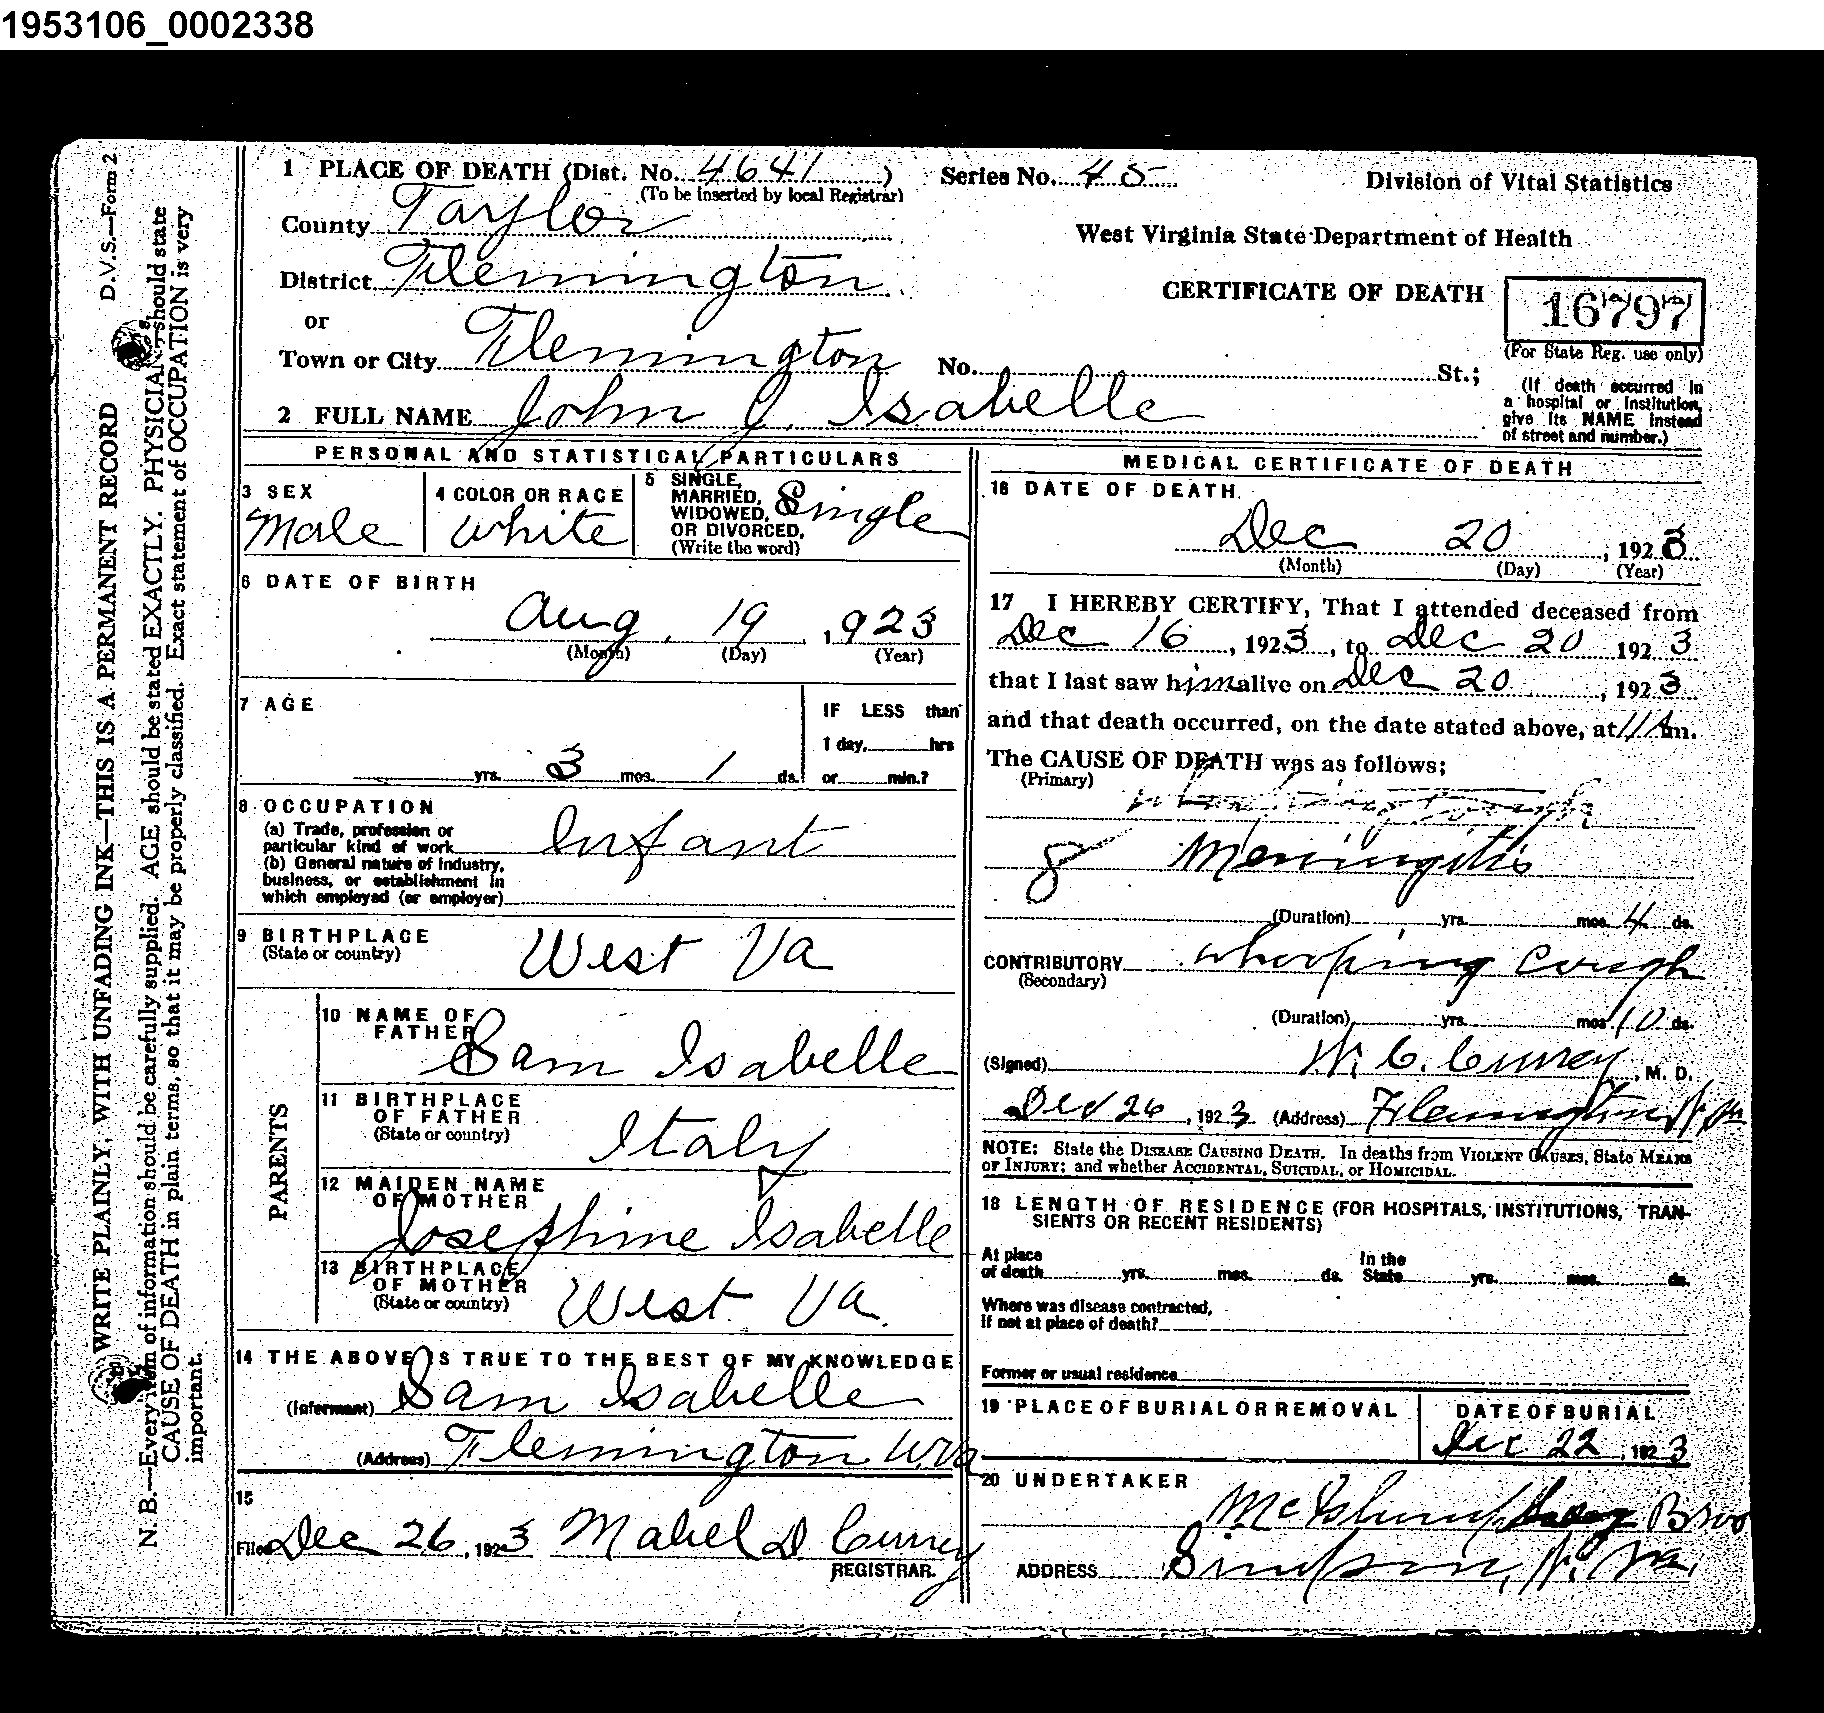 1953106_0002338
D.V.S.—Form 2
WRITE PLAINLY, WITH UNFADING INK—THIS IS A PERMANENT RECORD
N. B.—Every item of information should be carefully supplied. AGE should be stated EXACTLY. PHYSICIAN should state
CAUSE OF DEATH in plain terms, so that it may be properly classified. Exact statement of OCCUPATION is very
important.
1 PLACE OF DEATH (Dist. No. 4641 ) Series No. 45 Division of Vital Statistics
(To be inserted by local Registrar)
County Taylor
West Virginia State Department of Health
District Flemington
CERTIFICATE OF DEATH 16797
or
Town or City Flemington No. St.; (For State Reg. use only)
(If death occurred in
a hospital or institution,
give its NAME instead
of street and number.)
2 FULL NAME John J. Isabelle
PERSONAL AND STATISTICAL PARTICULARS
3 SEX
Male
4 COLOR OR RACE
White
5 SINGLE,
MARRIED,
WIDOWED,
OR DIVORCED,
(Write the word)
Single
6 DATE OF BIRTH
Aug. 19, 923
(Month) (Day) (Year)
7 AGE
yrs. 3 mos. 1 ds.
IF LESS than
1 day, hrs
or min.?
8 OCCUPATION
(a) Trade, profession or
particular kind of work Infant
(b) General nature of industry,
business, or establishment in
which employed (or employer)
9 BIRTHPLACE
(State or country) West Va
PARENTS
10 NAME OF
FATHER
Sam Isabelle
11 BIRTHPLACE
OF FATHER
(State or country) Italy
12 MAIDEN NAME
OF MOTHER
Josephine Isabelle
13 BIRTHPLACE
OF MOTHER
(State or country) West Va.
14 THE ABOVE IS TRUE TO THE BEST OF MY KNOWLEDGE
(Informant) Sam Isabelle
(Address) Flemington W.Va
15
Filed Dec 26, 1923 Mabel D. Currey
REGISTRAR.
MEDICAL CERTIFICATE OF DEATH
16 DATE OF DEATH
Dec 20, 1923
(Month) (Day) (Year)
17 I HEREBY CERTIFY, That I attended deceased from
Dec 16, 1923, to Dec 20 1923
that I last saw him alive on Dec 20, 1923
and that death occurred, on the date stated above, at 11 A m.
The CAUSE OF DEATH was as follows:
(Primary)
Whooping Cough
8 Meningitis
(Duration) yrs. mos. 4 ds.
CONTRIBUTORY Whooping Cough
(Secondary)
(Duration) yrs. mos. 10 ds.
(Signed) W. C. Currey, M. D.
Dec 26, 1923 (Address) Flemington W. Va
NOTE: State the DISEASE CAUSING DEATH. In deaths from VIOLENT CAUSES, State MEANS
OF INJURY; and whether ACCIDENTAL, SUICIDAL, or HOMICIDAL.
18 LENGTH OF RESIDENCE (FOR HOSPITALS, INSTITUTIONS, TRAN-
SIENTS OR RECENT RESIDENTS)
At place In the
of death yrs. mos. ds. State yrs. mos. ds.
Where was disease contracted,
If not at place of death?
Former or usual residence
19 PLACE OF BURIAL OR REMOVAL
DATE OF BURIAL
Dec 22, 1923
20 UNDERTAKER
Bros
ADDRESS Simpson, W. Va.